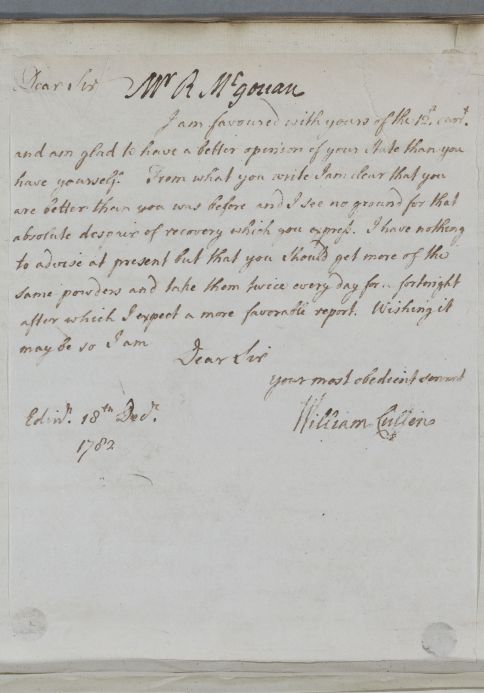 Dear Sir Mr R McGouan
I am favoured with yours of the 12th. curt.
and am glad to have a better opinion of your State than you
have yourself. From what you write I am clear that you
are better than you was before and I see no ground for that
absolute despair of recovery which you express. I have nothing
to advise at present but that you should get more of the
same powders and take them twice every day for a fortnight
after which I expect a more favorable report. Wishing it
may be so I am
Dear Sir
your most obedient servant
William Cullen
Edinr. 18th Decr.
1782